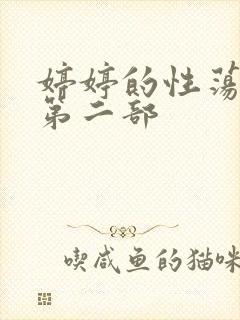 婷婷的性荡
第二部
喫咸鱼的猫咪